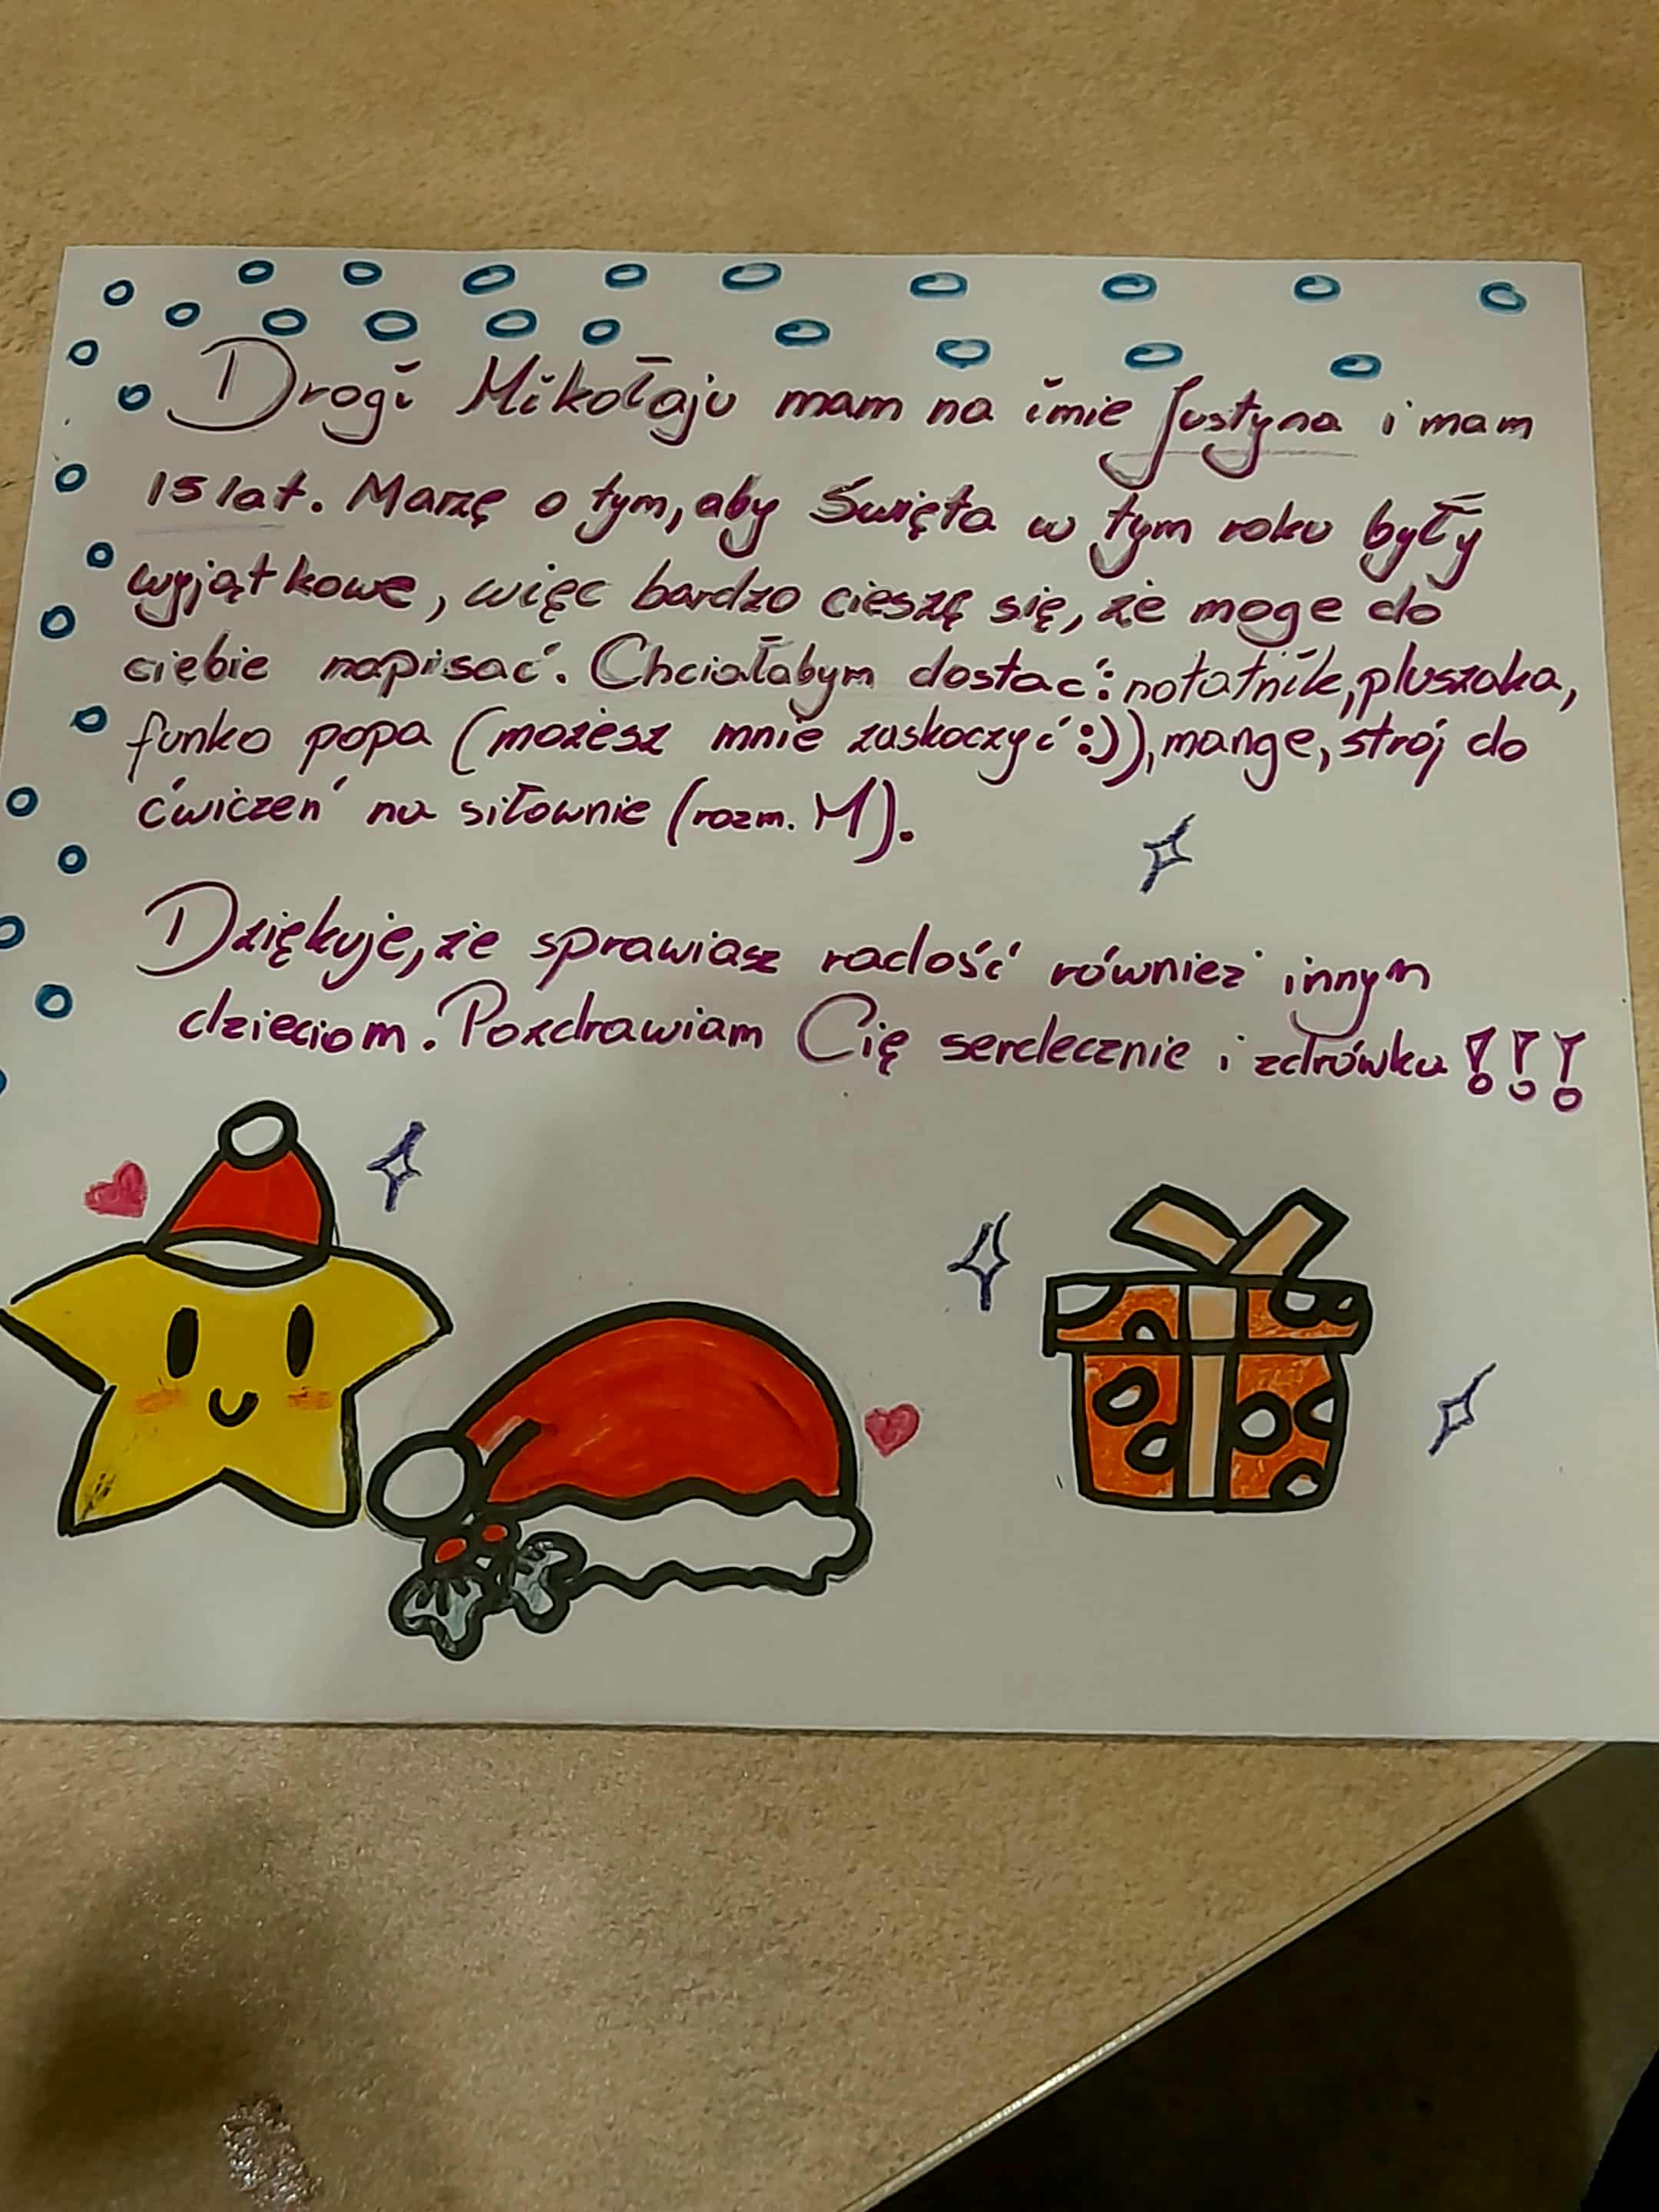 Drogi Mikołaju mam na imie Justyna i mam
15 lat. Marzę o tym, aby Święta w tym roku były
wyjątkowe, więc bardzo cieszę się, że moge do
ciebie napisać. Chciałabym dostać: notatnik, pluszaka,
funko popa (możesz mnie zaskoczyć :)), mange, strój do
ćwiczeń na siłownie (rozm. M).
Dziękuje, że sprawiasz radość również innym
dzieciom. Pozdrawiam Cię serdecznie i zdrówka!!!